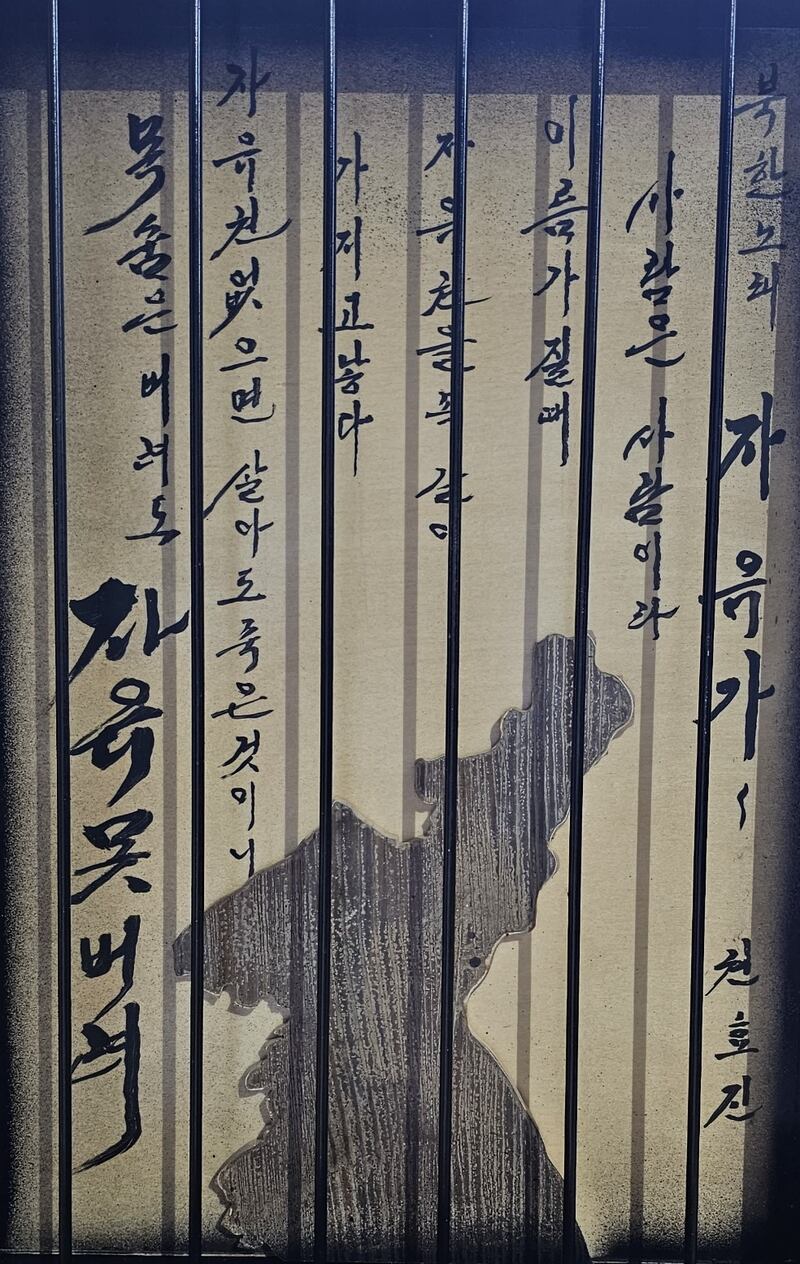 북한노래 자유가 ~ 권효진
사람은 사람이라
이름가질때
자유권을똑같이
가지고낳다
자유권없으면 살아도죽은것이니
목숨은 버려도 자유못버려